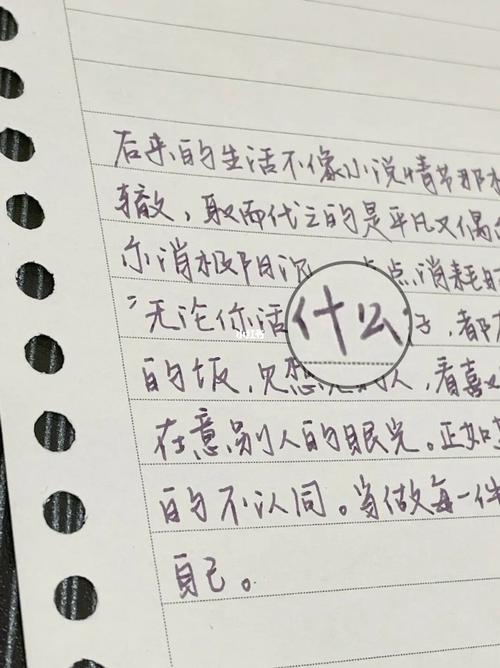 后来的生活不像小说情节那
辙，取而代之的是平凡又偶
你消极阴沉 点点消耗
“无论你活什么 子，都
的饭，见想见的人，看喜
在意别人的眼光。正如
的不认同。当做每一件
自己。